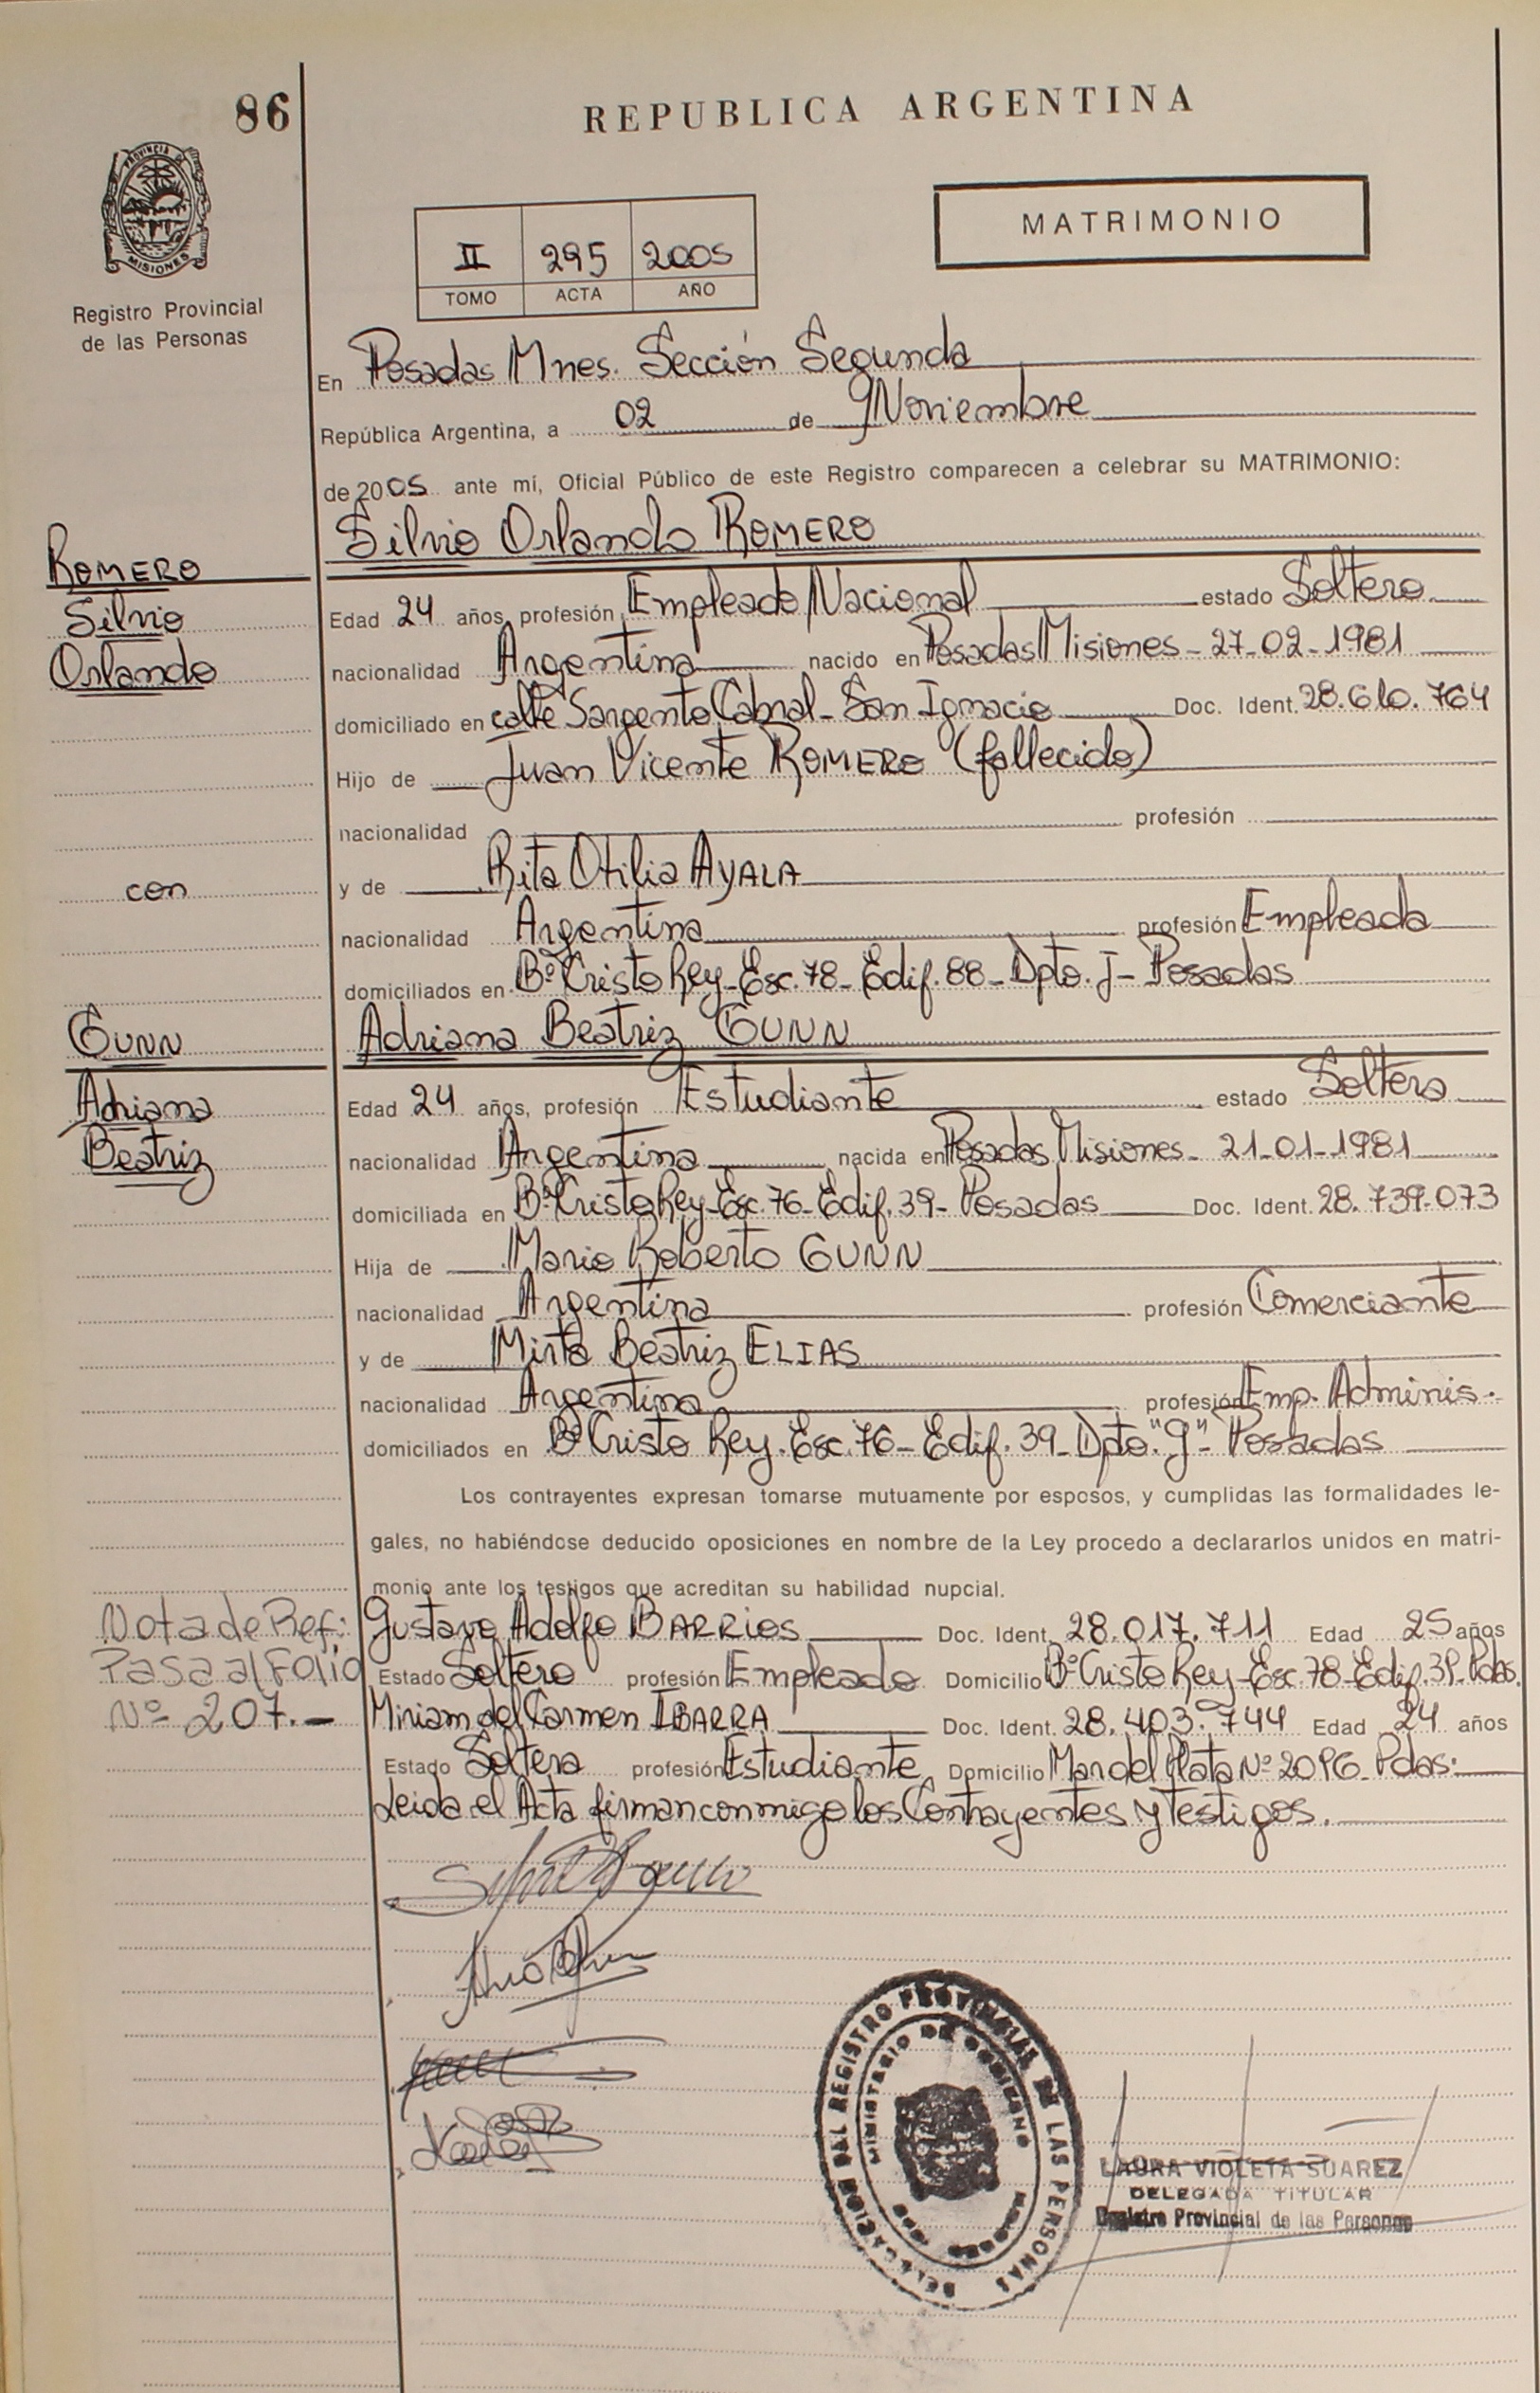 86
REPUBLICA ARGENTINA
PROVINCIA DE
MISIONES
Registro Provincial
de las Personas
MATRIMONIO
II 295 2005
TOMO ACTA AÑO
En Posadas Mnes. Sección Segunda
República Argentina, a 02 de Noviembre
de 2005 ante mí, Oficial Público de este Registro comparecen a celebrar su MATRIMONIO:
Silvio Orlando ROMERO
ROMERO
Silvio
Orlando
Edad 24 años, profesión Empleado Nacional estado Soltero
nacionalidad Argentina nacido en Posadas Misiones - 27-02-1981
domiciliado en calle Sargento Cabral - San Ignacio Doc. Ident. 28.610.764
Hijo de Juan Vicente ROMERO (fallecido)
nacionalidad profesión
con
y de Rita Otilia AYALA
nacionalidad Argentina profesión Empleada
domiciliados en Bº Cristo Rey - Esc. 78 - Edif. 88 - Dpto. J - Posadas
GUNN
Adriana
Beatriz
Adriana Beatriz GUNN
Edad 24 años, profesión Estudiante estado Soltera
nacionalidad Argentina nacida en Posadas Misiones - 21-01-1981
domiciliada en Bº Cristo Rey - Esc. 76 - Edif. 39 - Posadas Doc. Ident. 28.739.073
Hija de Mario Roberto GUNN
nacionalidad Argentina profesión Comerciante
y de Mirta Beatriz ELIAS
nacionalidad Argentina profesión Emp. Adminis.
domiciliados en Bº Cristo Rey. Esc. 76 - Edif. 39 - Dpto. "g" - Posadas
Los contrayentes expresan tomarse mutuamente por esposos, y cumplidas las formalidades le-
gales, no habiéndose deducido oposiciones en nombre de la Ley procedo a declararlos unidos en matri-
monio ante los testigos que acreditan su habilidad nupcial.
Nota de Ref:
Pasa al Folio
Nº 207.-
Gustavo Adolfo BARRIOS Doc. Ident. 28.017.711 Edad 25 años
Estado Soltero profesión Empleado Domicilio Bº Cristo Rey - Esc. 78 - Edif. 39 - Pdas.
Miriam del Carmen IBARRA Doc. Ident. 28.403.744 Edad 24 años
Estado Soltera profesión Estudiante Domicilio Mar del Plata Nº 2096 - Pdas.
Leida el Acta firman conmigo los Contrayentes y Testigos.
DELEGACION DEL REGISTRO PROVINCIAL DE LAS PERSONAS
MINISTERIO DE GOBIERNO
LAURA VIOLETA SUAREZ
DELEGADA TITULAR
Registro Provincial de las Personas